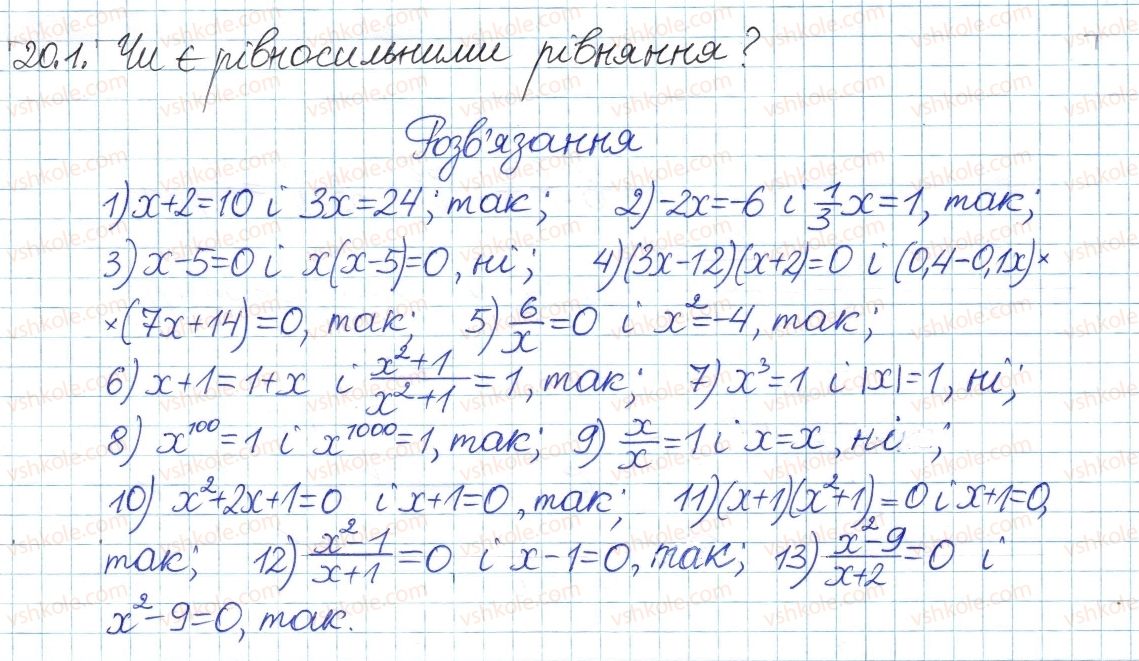 20.1. Чи є рівносильними рівняння?
Розв'язання
1) x+2=10 і 3x=24; так; 2) -2x=-6 і 1/3 x=1, так;
3) x-5=0 і x(x-5)=0, ні; 4) (3x-12)(x+2)=0 і (0,4-0,1x)×
×(7x+14)=0, так; 5) 6/x=0 і x²=-4, так;
6) x+1=1+x і (x²+1)/(x²+1)=1, так; 7) x³=1 і |x|=1, ні;
8) x¹⁰⁰=1 і x¹⁰⁰⁰=1, так; 9) x/x=1 і x=x, ні;
10) x²+2x+1=0 і x+1=0, так; 11) (x+1)(x²+1)=0 і x+1=0,
так; 12) (x²-1)/(x+1)=0 і x-1=0, так; 13) (x²-9)/(x+2)=0 і
x²-9=0, так.